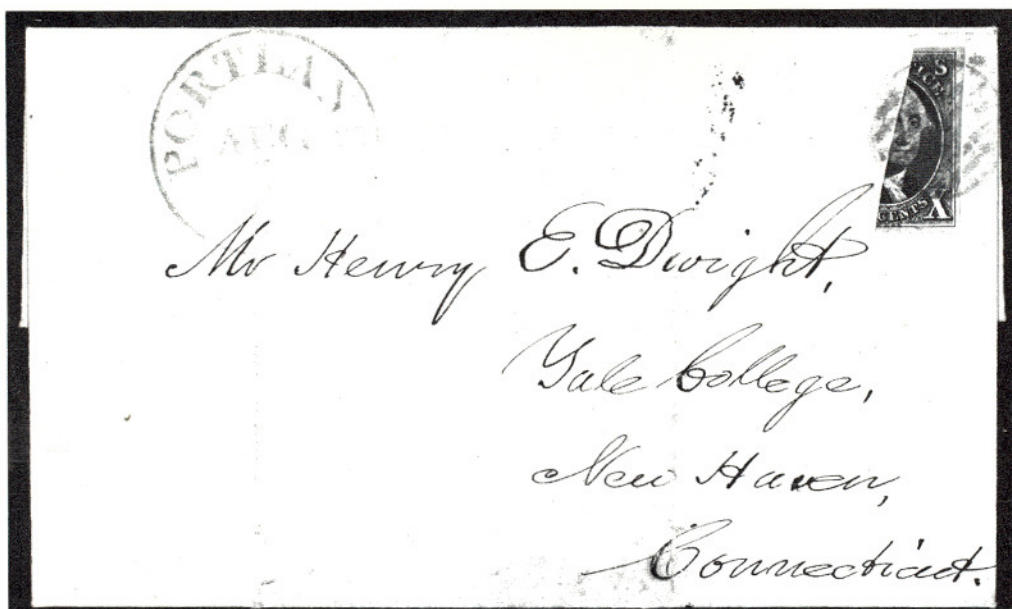 PORTLAN
AUG
S
FICE
CENTS X
Mr Henry E. Dwight,
Yale College,
New Haven,
Connecticut.